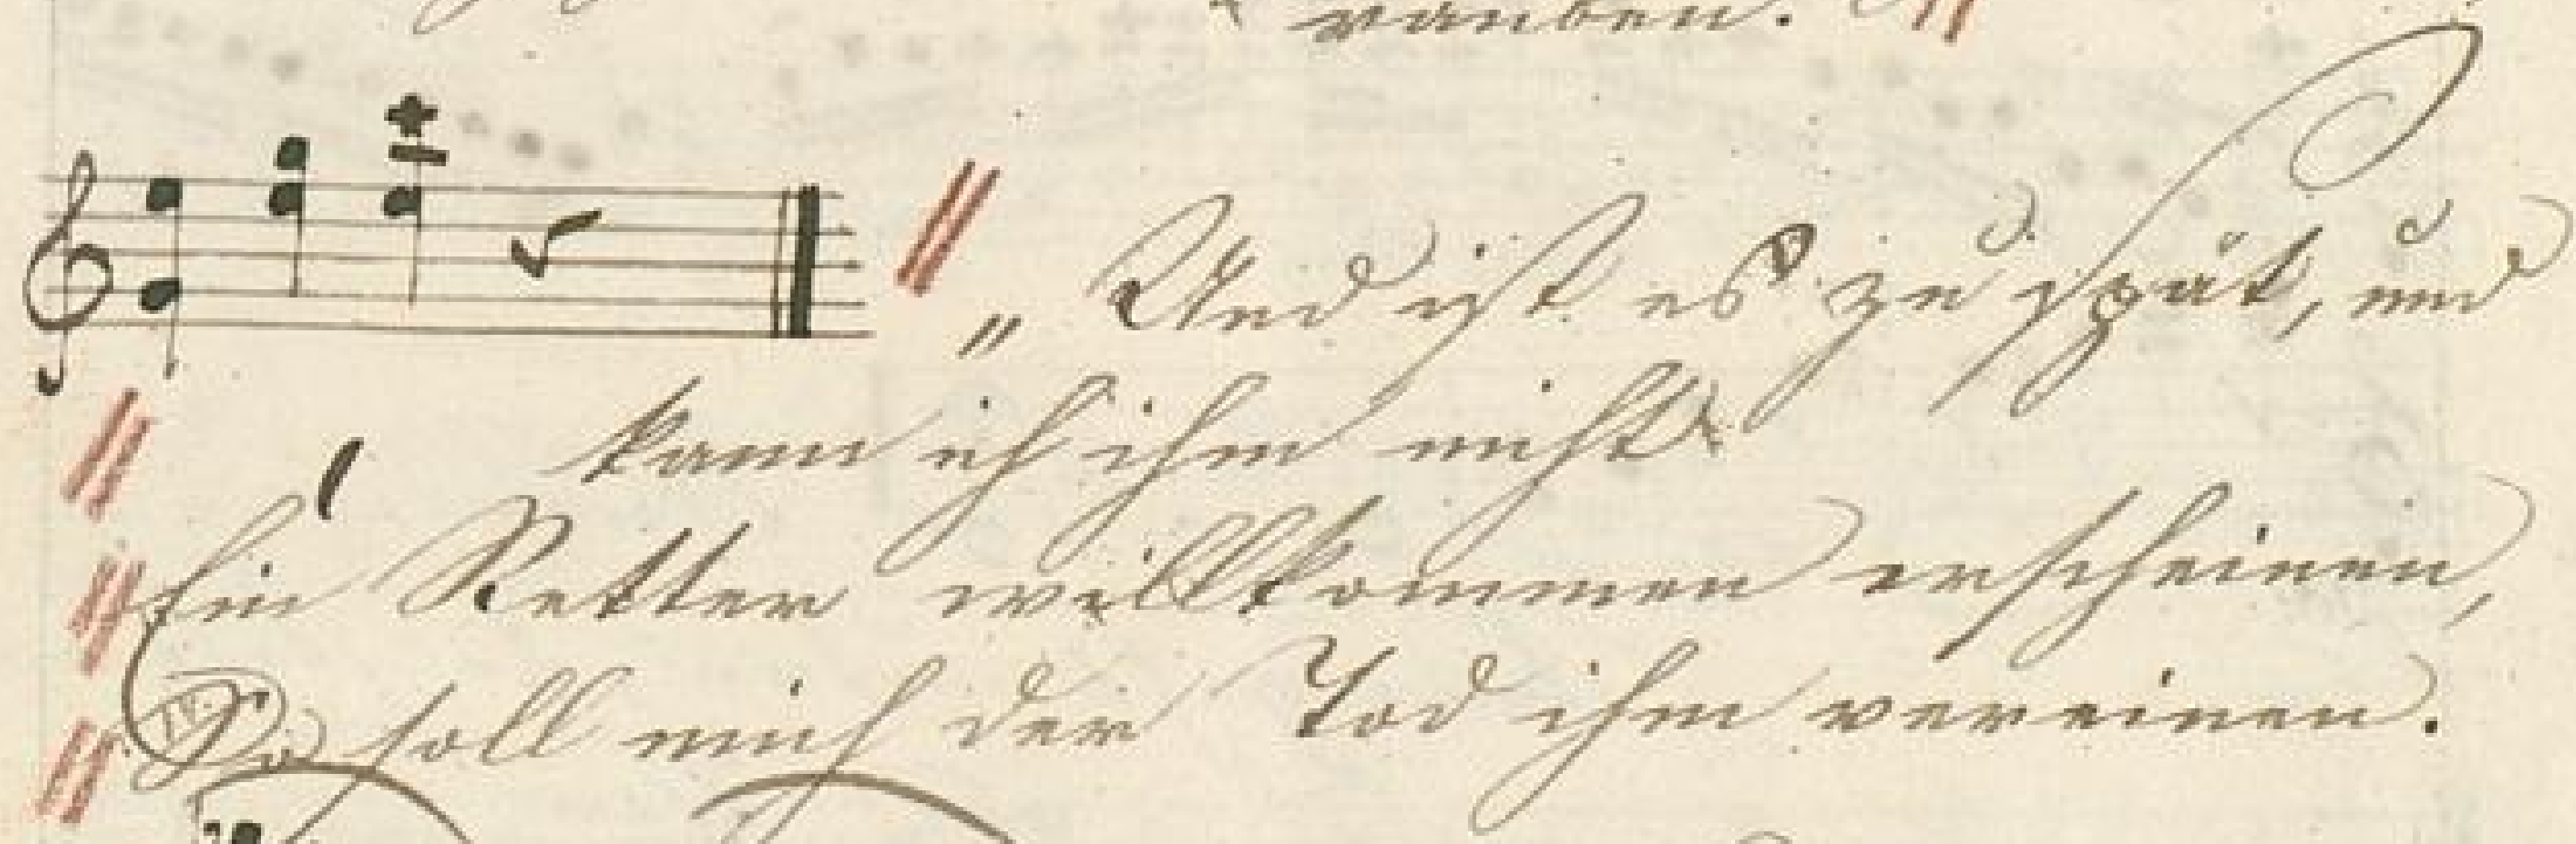 rauben.
„Und ist es zu spät, und
kann ich ihm nicht
Ein Retter willkommen erscheinen,
So soll mich der Tod ihm vereinen.